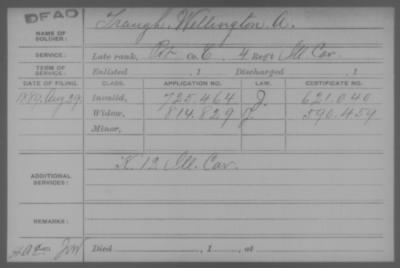 DEAD
NAME OF SOLDIER: Traugh, Wellington A.
SERVICE: Late rank, Pvt Co. C, 4 Reg't Ill Cav.
TERM OF SERVICE: Enlisted , 1 Discharged , 1
DATE OF FILING. CLASS. APPLICATION NO. LAW. CERTIFICATE NO.
1889, Aug 29 Invalid, 725.464 J. 621.040
Widow, 814.829 J 590.459
Minor,
ADDITIONAL SERVICES: K. 12 Ill. Cav.
REMARKS:
Died , 1 , at